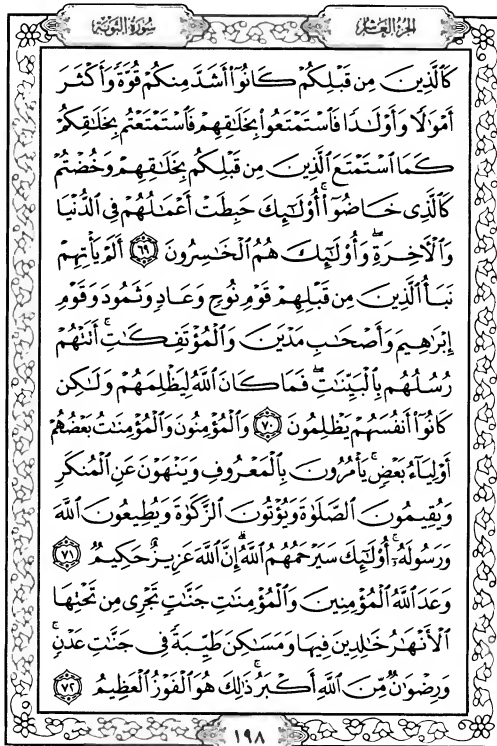 سُورَةُ التَّوْبَةِ
الجُزءُ العَاشِرُ
كَٱلَّذِينَ مِن قَبْلِكُمْ كَانُوٓا۟ أَشَدَّ مِنكُمْ قُوَّةً وَأَكْثَرَ
أَمْوَٰلًا وَأَوْلَٰدًا فَٱسْتَمْتَعُوا۟ بِخَلَٰقِهِمْ فَٱسْتَمْتَعْتُم بِخَلَٰقِكُمْ
كَمَا ٱسْتَمْتَعَ ٱلَّذِينَ مِن قَبْلِكُم بِخَلَٰقِهِمْ وَخُضْتُمْ
كَٱلَّذِى خَاضُوٓا۟ ۚ أُو۟لَٰٓئِكَ حَبِطَتْ أَعْمَٰلُهُمْ فِى ٱلدُّنْيَا
وَٱلْءَاخِرَةِ ۖ وَأُو۟لَٰٓئِكَ هُمُ ٱلْخَٰسِرُونَ ٦٩ أَلَمْ يَأْتِهِمْ
نَبَأُ ٱلَّذِينَ مِن قَبْلِهِمْ قَوْمِ نُوحٍ وَعَادٍ وَثَمُودَ وَقَوْمِ
إِبْرَٰهِيمَ وَأَصْحَٰبِ مَدْيَنَ وَٱلْمُؤْتَفِكَٰتِ ۚ أَتَتْهُمْ
رُسُلُهُم بِٱلْبَيِّنَٰتِ ۖ فَمَا كَانَ ٱللَّهُ لِيَظْلِمَهُمْ وَلَٰكِن
كَانُوٓا۟ أَنفُسَهُمْ يَظْلِمُونَ ٧٠ وَٱلْمُؤْمِنُونَ وَٱلْمُؤْمِنَٰتُ بَعْضُهُمْ
أَوْلِيَآءُ بَعْضٍ ۚ يَأْمُرُونَ بِٱلْمَعْرُوفِ وَيَنْهَوْنَ عَنِ ٱلْمُنكَرِ
وَيُقِيمُونَ ٱلصَّلَوٰةَ وَيُؤْتُونَ ٱلزَّكَوٰةَ وَيُطِيعُونَ ٱللَّهَ
وَرَسُولَهُۥٓ ۚ أُو۟لَٰٓئِكَ سَيَرْحَمُهُمُ ٱللَّهُ ۗ إِنَّ ٱللَّهَ عَزِيزٌ حَكِيمٌ ٧١
وَعَدَ ٱللَّهُ ٱلْمُؤْمِنِينَ وَٱلْمُؤْمِنَٰتِ جَنَّٰتٍ تَجْرِى مِن تَحْتِهَا
ٱلْأَنْهَٰرُ خَٰلِدِينَ فِيهَا وَمَسَٰكِنَ طَيِّبَةً فِى جَنَّٰتِ عَدْنٍ ۚ
وَرِضْوَٰنٌ مِّنَ ٱللَّهِ أَكْبَرُ ۚ ذَٰلِكَ هُوَ ٱلْفَوْزُ ٱلْعَظِيمُ ٧٢
١٩٨